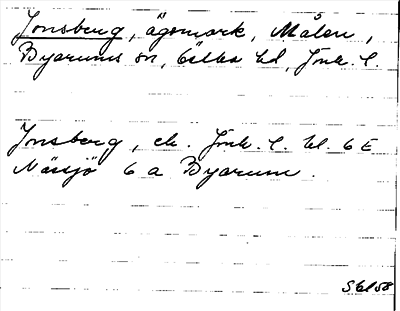 Jonsberg, ägomark, Målen,
Byarums sn, Östbo hd, Jönk. l.
Jonsberg, ek. Jönk. l. bl. 6 E
Nässjö 6 a Byarum.